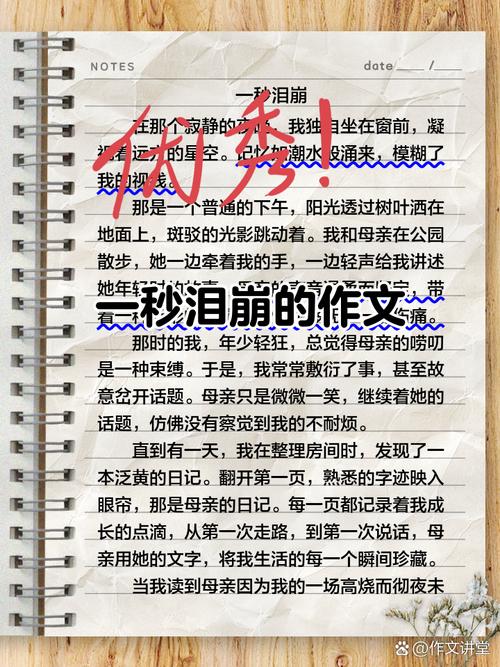 NOTES
date ____ / ____
一秒泪崩
在那个寂静的夜晚，我独自坐在窗前，凝
视着远方的星空。记忆如潮水般涌来，模糊了
我的视线。
优秀！
那是一个普通的下午，阳光透过树叶洒在
地面上，斑驳的光影跳动着。我和母亲在公园
散步，她一边牵着我的手，一边轻声给我讲述
她年轻时的故事。
带
一秒泪崩的作文
着一种
伤痛。
那时的我，年少轻狂，总觉得母亲的唠叨
是一种束缚。于是，我常常敷衍了事，甚至故
意岔开话题。母亲只是微微一笑，继续着她的
话题，仿佛没有察觉到我的不耐烦。
直到有一天，我在整理房间时，发现了一
本泛黄的日记。翻开第一页，熟悉的字迹映入
眼帘，那是母亲的日记。每一页都记录着我成
长的点滴，从第一次走路，到第一次说话，母
亲用她的文字，将我生活的每一个瞬间珍藏。
当我读到母亲因为我的一场高烧而彻夜未
@作文讲堂